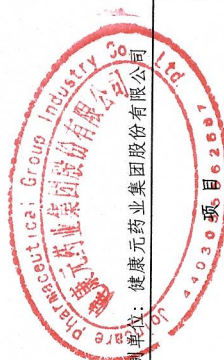 Joincare Pharmaceutical Group Industry Co., Ltd.
健康元药业集团股份有限公司
制单位:健康元药业集团股份有限公司
项目